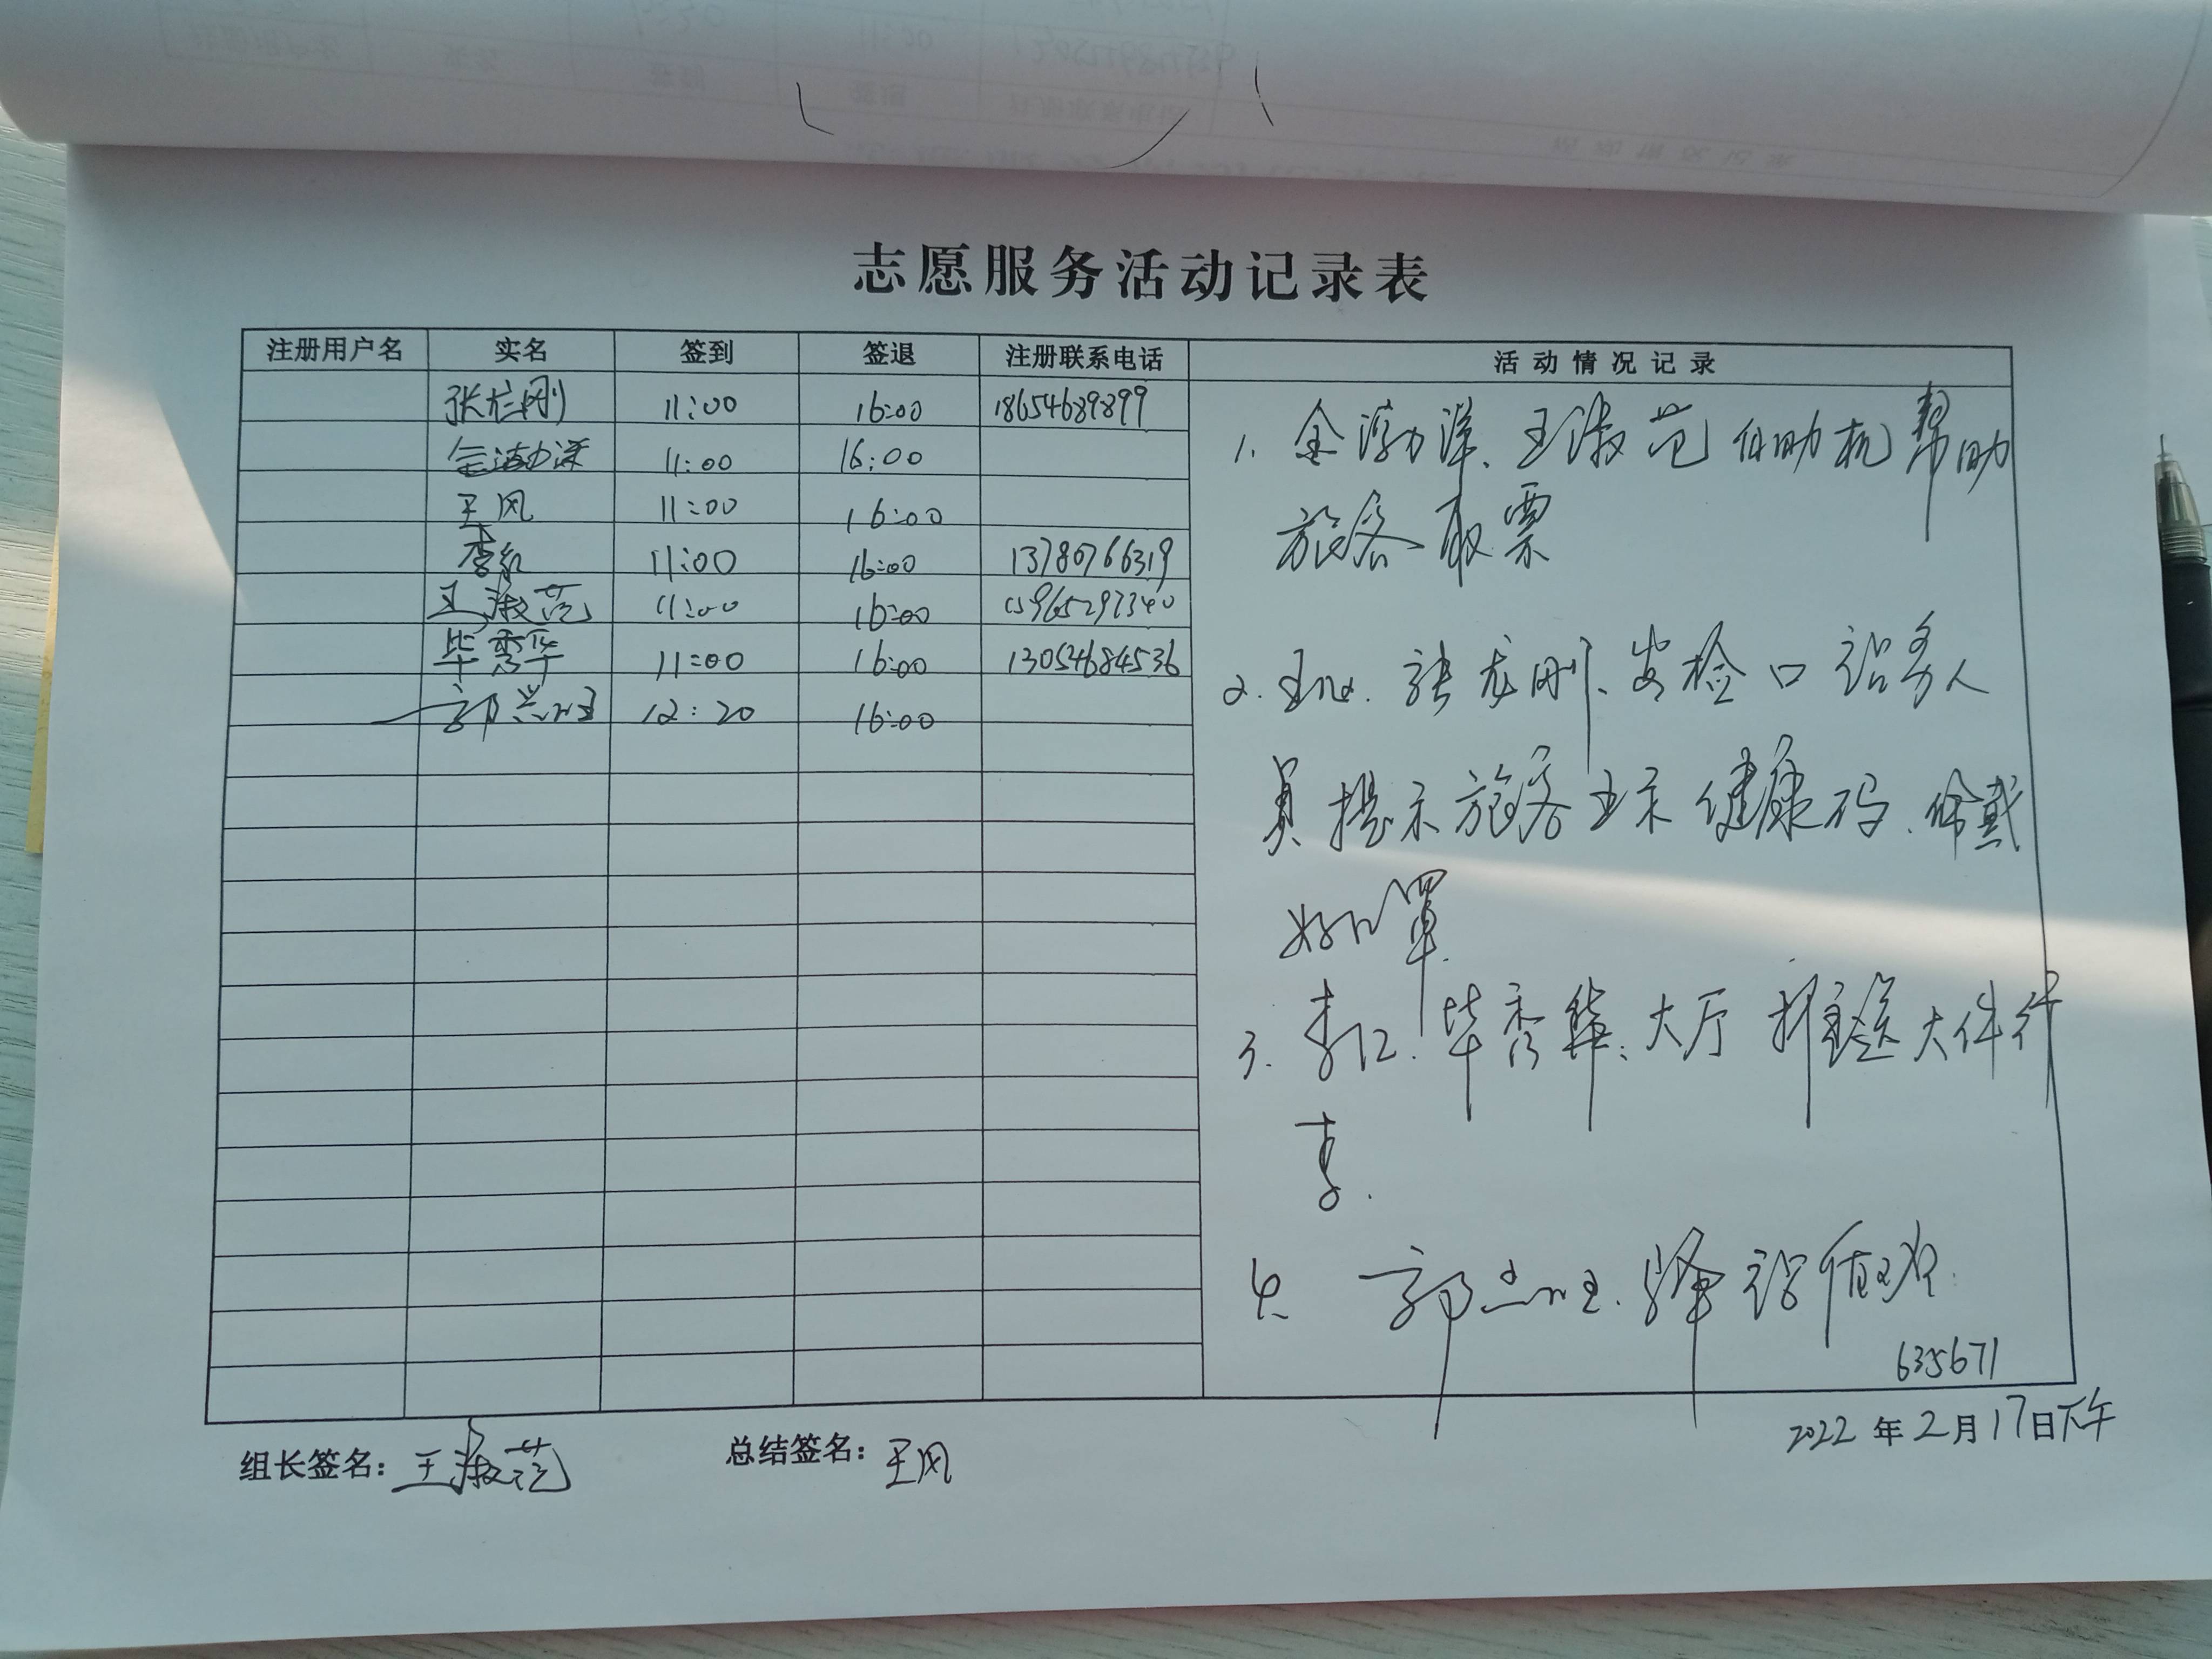 志愿服务活动记录表
注册用户名 实名 签到 签退 注册联系电话 活动情况记录
张龙刚 11:00 16:00 18654689899
金渤洋 11:00 16:00
王风 11:00 16:00
李红 11:00 16:00 13780766319
王淑范 11:00 16:00 15965297340
毕秀华 11:00 16:00 13054684536
郭兴旺 12:20 16:00
1. 金渤洋、王淑范 自助机帮助
旅客取票
2. 王风. 张龙刚、安检口 工作人
员提示旅客出示健康码、佩戴
好口罩.
3. 李红. 毕秀华: 大厅 推送大件行
李.
4. 郭兴旺.
635671
组长签名：王淑范 总结签名：王风 2022年2月17日下午